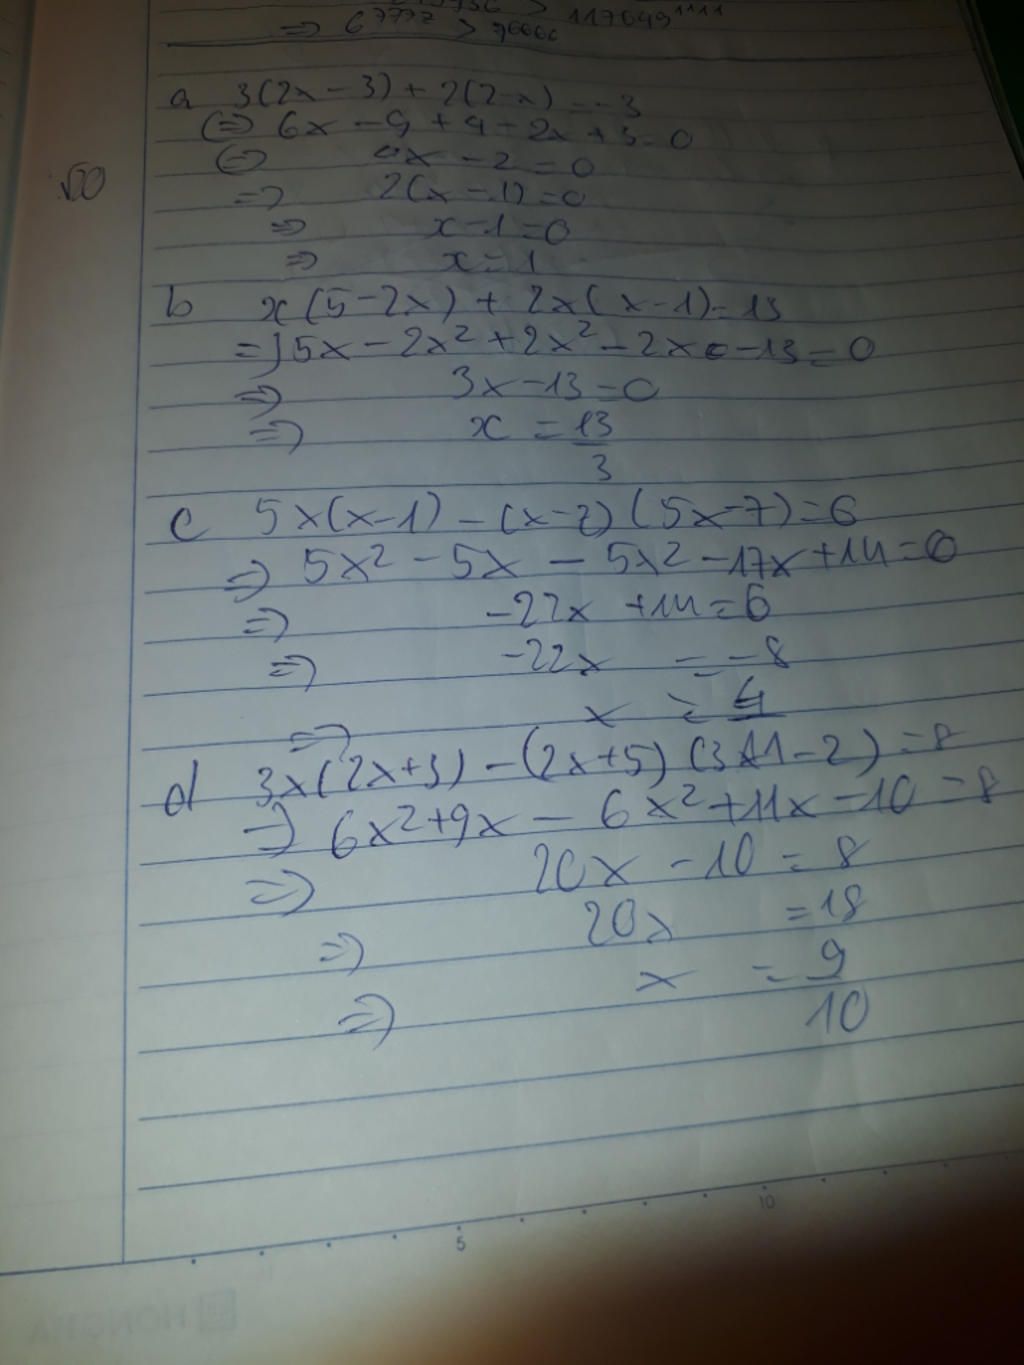 117649¹¹¹¹
=> 6⁷⁷⁷² > 7⁶⁶⁶⁶
a 3(2x - 3) + 2(2-x) = -3
<=> 6x - 9 + 4 - 2x + 3 = 0
<=> x - 2 = 0
=> 2(x - 1) = 0
=> x - 1 = 0
=> x = 1
b x(5 - 2x) + 2x(x - 1) = 13
=> 5x - 2x² + 2x² - 2x - 13 = 0
=> 3x - 13 = 0
=> x = 13/3
c 5x(x-1) - (x-2)(5x-7) = 6
=> 5x² - 5x - 5x² - 17x + 14 = 0
=> -22x + 14 = 6
=> -22x = -8
=> x = 4
d 3x(2x+3) - (2x+5)(3 - 2) = 8
=> 6x² + 9x - 6x² + 11x - 10 = 8
=> 20x - 10 = 8
=> 20x = 18
=> x = 9/10
5 10